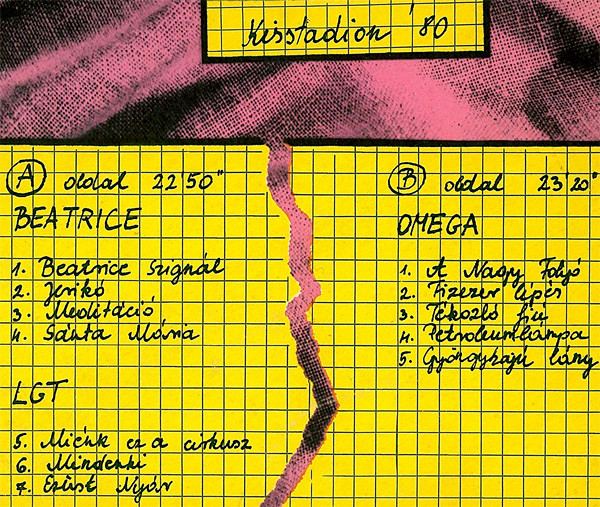 Kisstadion '80
A oldal 22'50"
BEATRICE
1. Beatrice szignál
2. Jerikó
3. Meditáció
4. Santa Maria
LGT
5. Miénk ez a cirkusz
6. Mindenki
7. Ezüst Nyár
B oldal 23'20"
OMEGA
1. A Nagy Folyó
2. Tizezer lépés
3. Tékozló fiú
4. Petróleumlámpa
5. Gyöngyhajú lány